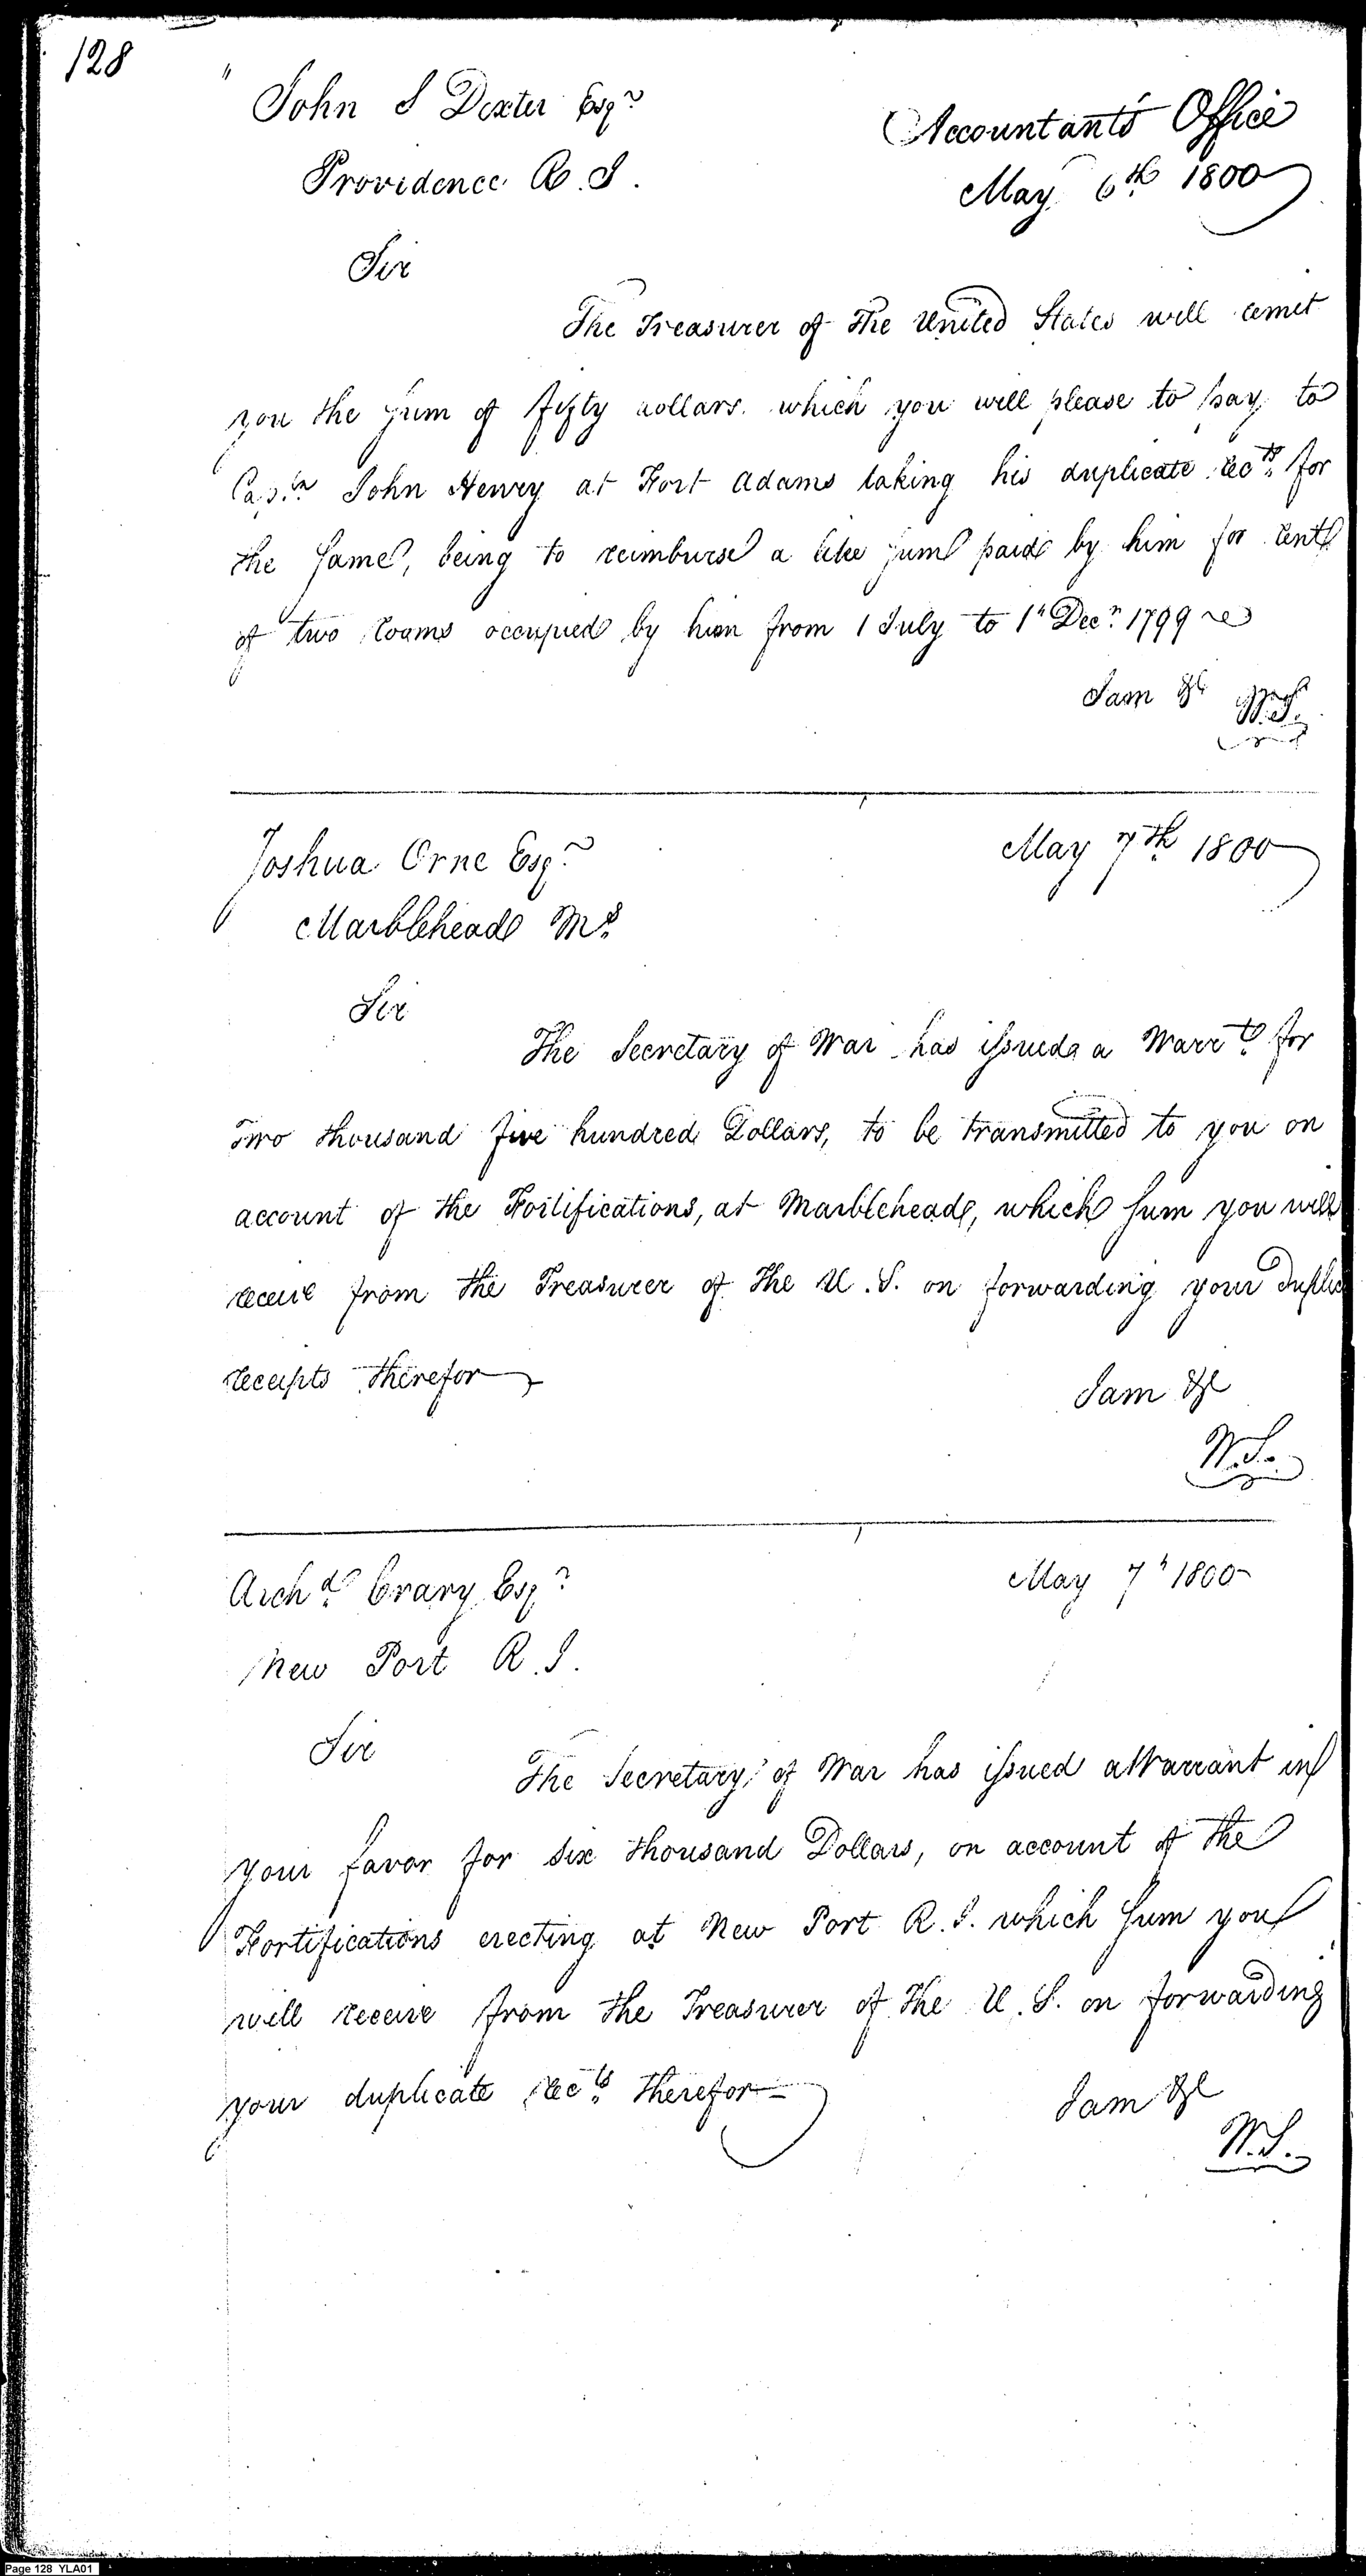 128
John S Dexter Esqr
Accountants Office
Providence R. I.
May 6th 1800
Sir
The Treasurer of the United States will remit
you the sum of fifty dollars which you will please to pay to
Captn John Henry at Fort Adams taking his duplicate recTs for
the same, being to reimburse a like sum paid by him for rent
of two rooms occupied by him from 1 July to 1t Decr 1799
I am &c
W.S.
Joshua Orne Esqr
May 7th 1800
Marblehead Ms
Sir
The Secretary of War has issued a Warrt for
Two thousand five hundred Dollars, to be transmitted to you on
account of the Fortifications, at Marblehead, which sum you will
receive from the Treasurer of the U. S. on forwarding your duplic
receipts therefor
I am &c
W.S.
Archd Crary Esqr
May 7h 1800
New Port R. I.
Sir
The Secretary of War has issued a Warrant in
your favor for six thousand Dollars, on account of the
Fortifications erecting at New Port R. I. which sum you
will receive from the Treasurer of the U. S. on forwarding
your duplicate recTs therefor
I am &c
W.S.
Page 128 YLA01